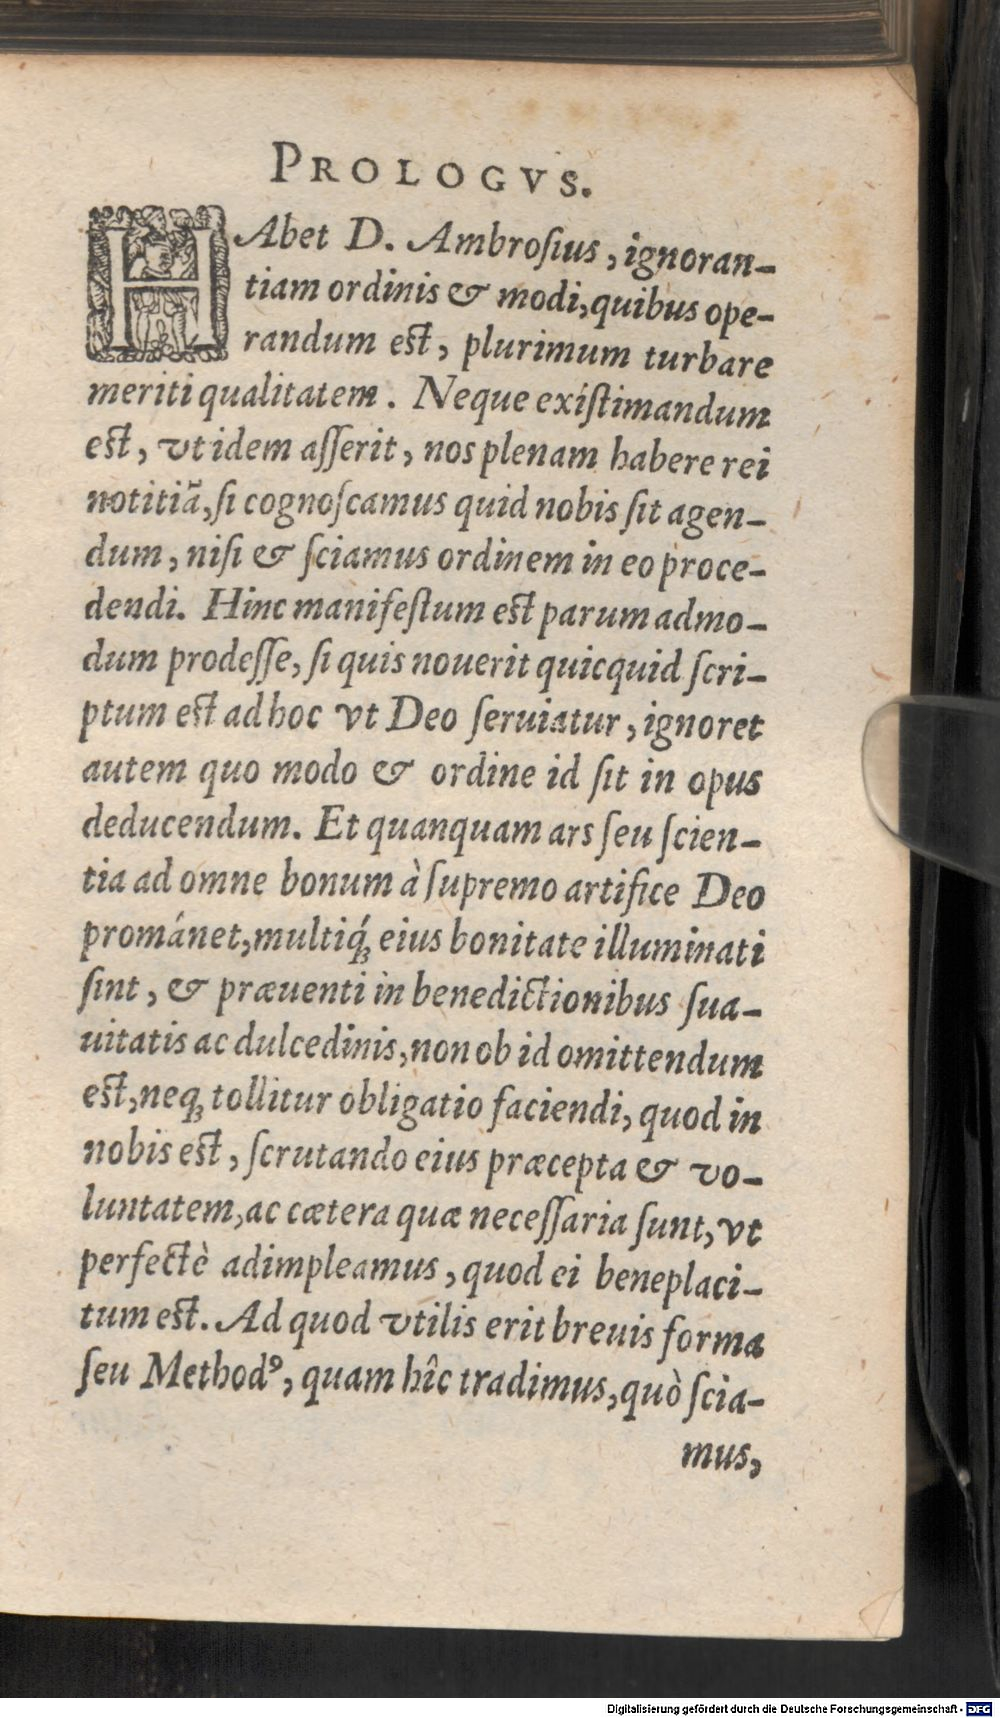 PROLOGVS.
HAbet D. Ambroſius, ignoran-
tiam ordinis & modi, quibus ope-
randum eſt, plurimum turbare
meriti qualitatem. Neque exiſtimandum
eſt, vt idem aſſerit, nos plenam habere rei
notitiã, ſi cognoſcamus quid nobis ſit agen-
dum, niſi & ſciamus ordinem in eo proce-
dendi. Hinc manifeſtum eſt parum admo-
dum prodeſſe, ſi quis nouerit quicquid ſcri-
ptum eſt ad hoc vt Deo ſeruiatur, ignoret
autem quo modo & ordine id ſit in opus
deducendum. Et quanquam ars ſeu ſcien-
tia ad omne bonum à ſupremo artifice Deo
prománet, multiq́ꝫ eius bonitate illuminati
ſint, & præuenti in benedictionibus ſua-
uitatis ac dulcedinis, non ob id omittendum
eſt, neqꝫ tollitur obligatio faciendi, quod in
nobis eſt, ſcrutando eius præcepta & vo-
luntatem, ac cætera quæ neceſſaria ſunt, vt
perfectè adimpleamus, quod ei beneplaci-
tum eſt. Ad quod vtilis erit breuis forma
ſeu Methodꝰ, quam hîc tradimus, quò ſcia-
mus,
Digitalisierung gefördert durch die Deutsche Forschungsgemeinschaft - DFG